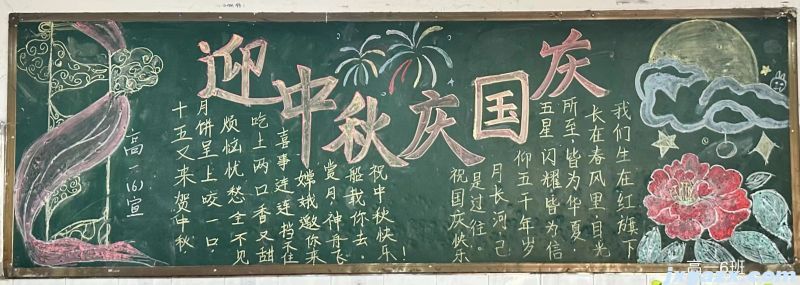 迎中秋庆国庆
高一(6)宣
十五又来贺中秋,
月饼呈上咬一口,
烦恼忧愁全不见
吃上两口香又甜
喜事连连挡不住
嫦娥邀你来
赏月,神舟飞
船载你去。
祝中秋快乐!
我们生在红旗下
长在春风里,目光
所至,皆为华夏,
五星闪耀皆为信
仰五千年岁
月长河已
是过往。
祝国庆快乐
高一6班